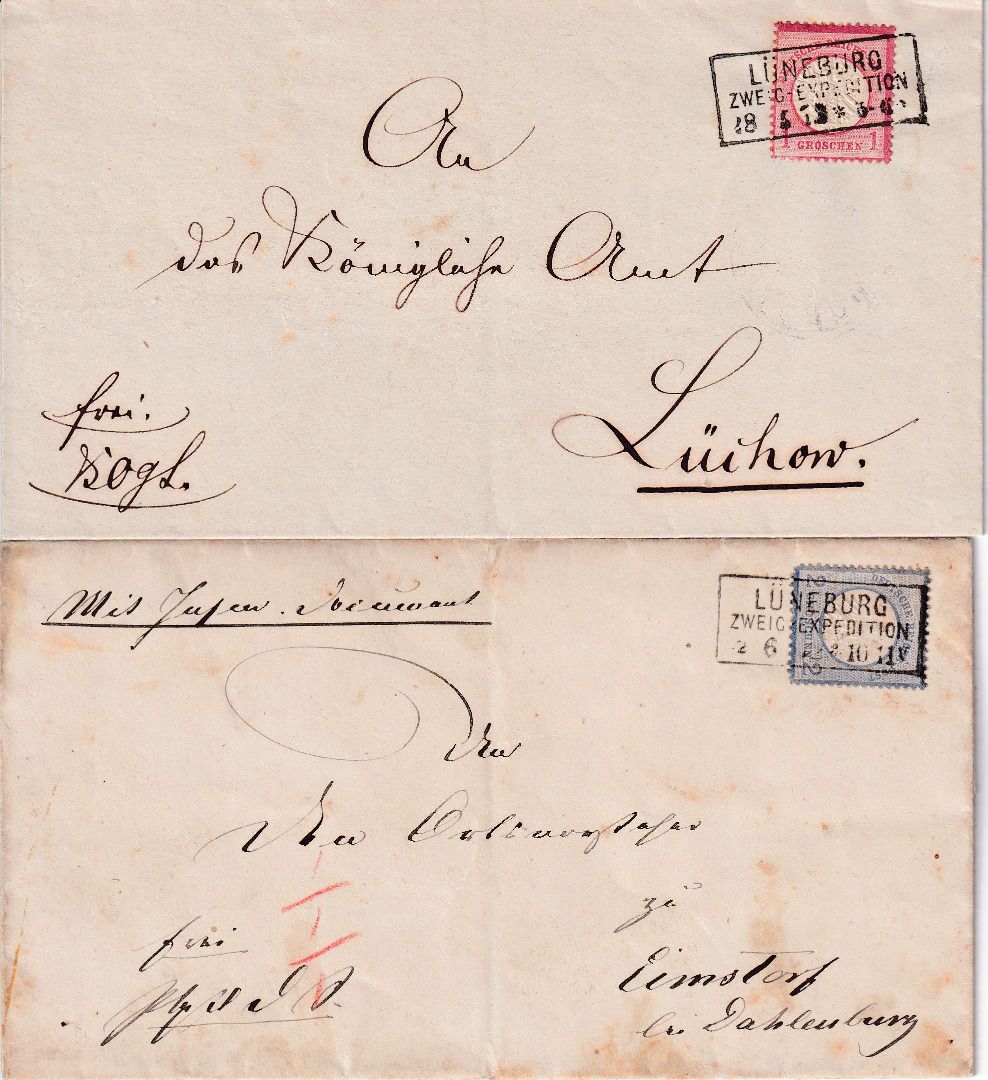 LÜNEBURG
ZWEIG-EXPEDITION
1 GROSCHEN 1
An
das Königliche Amt
Lüchow.
frei.
LÜNEBURG
ZWEIG-EXPEDITION
6 10-11V
2 2
Mit Insin. Document
An
den Ortsvorsteher
zu
Eimstorf
bei Dahlenburg
frei